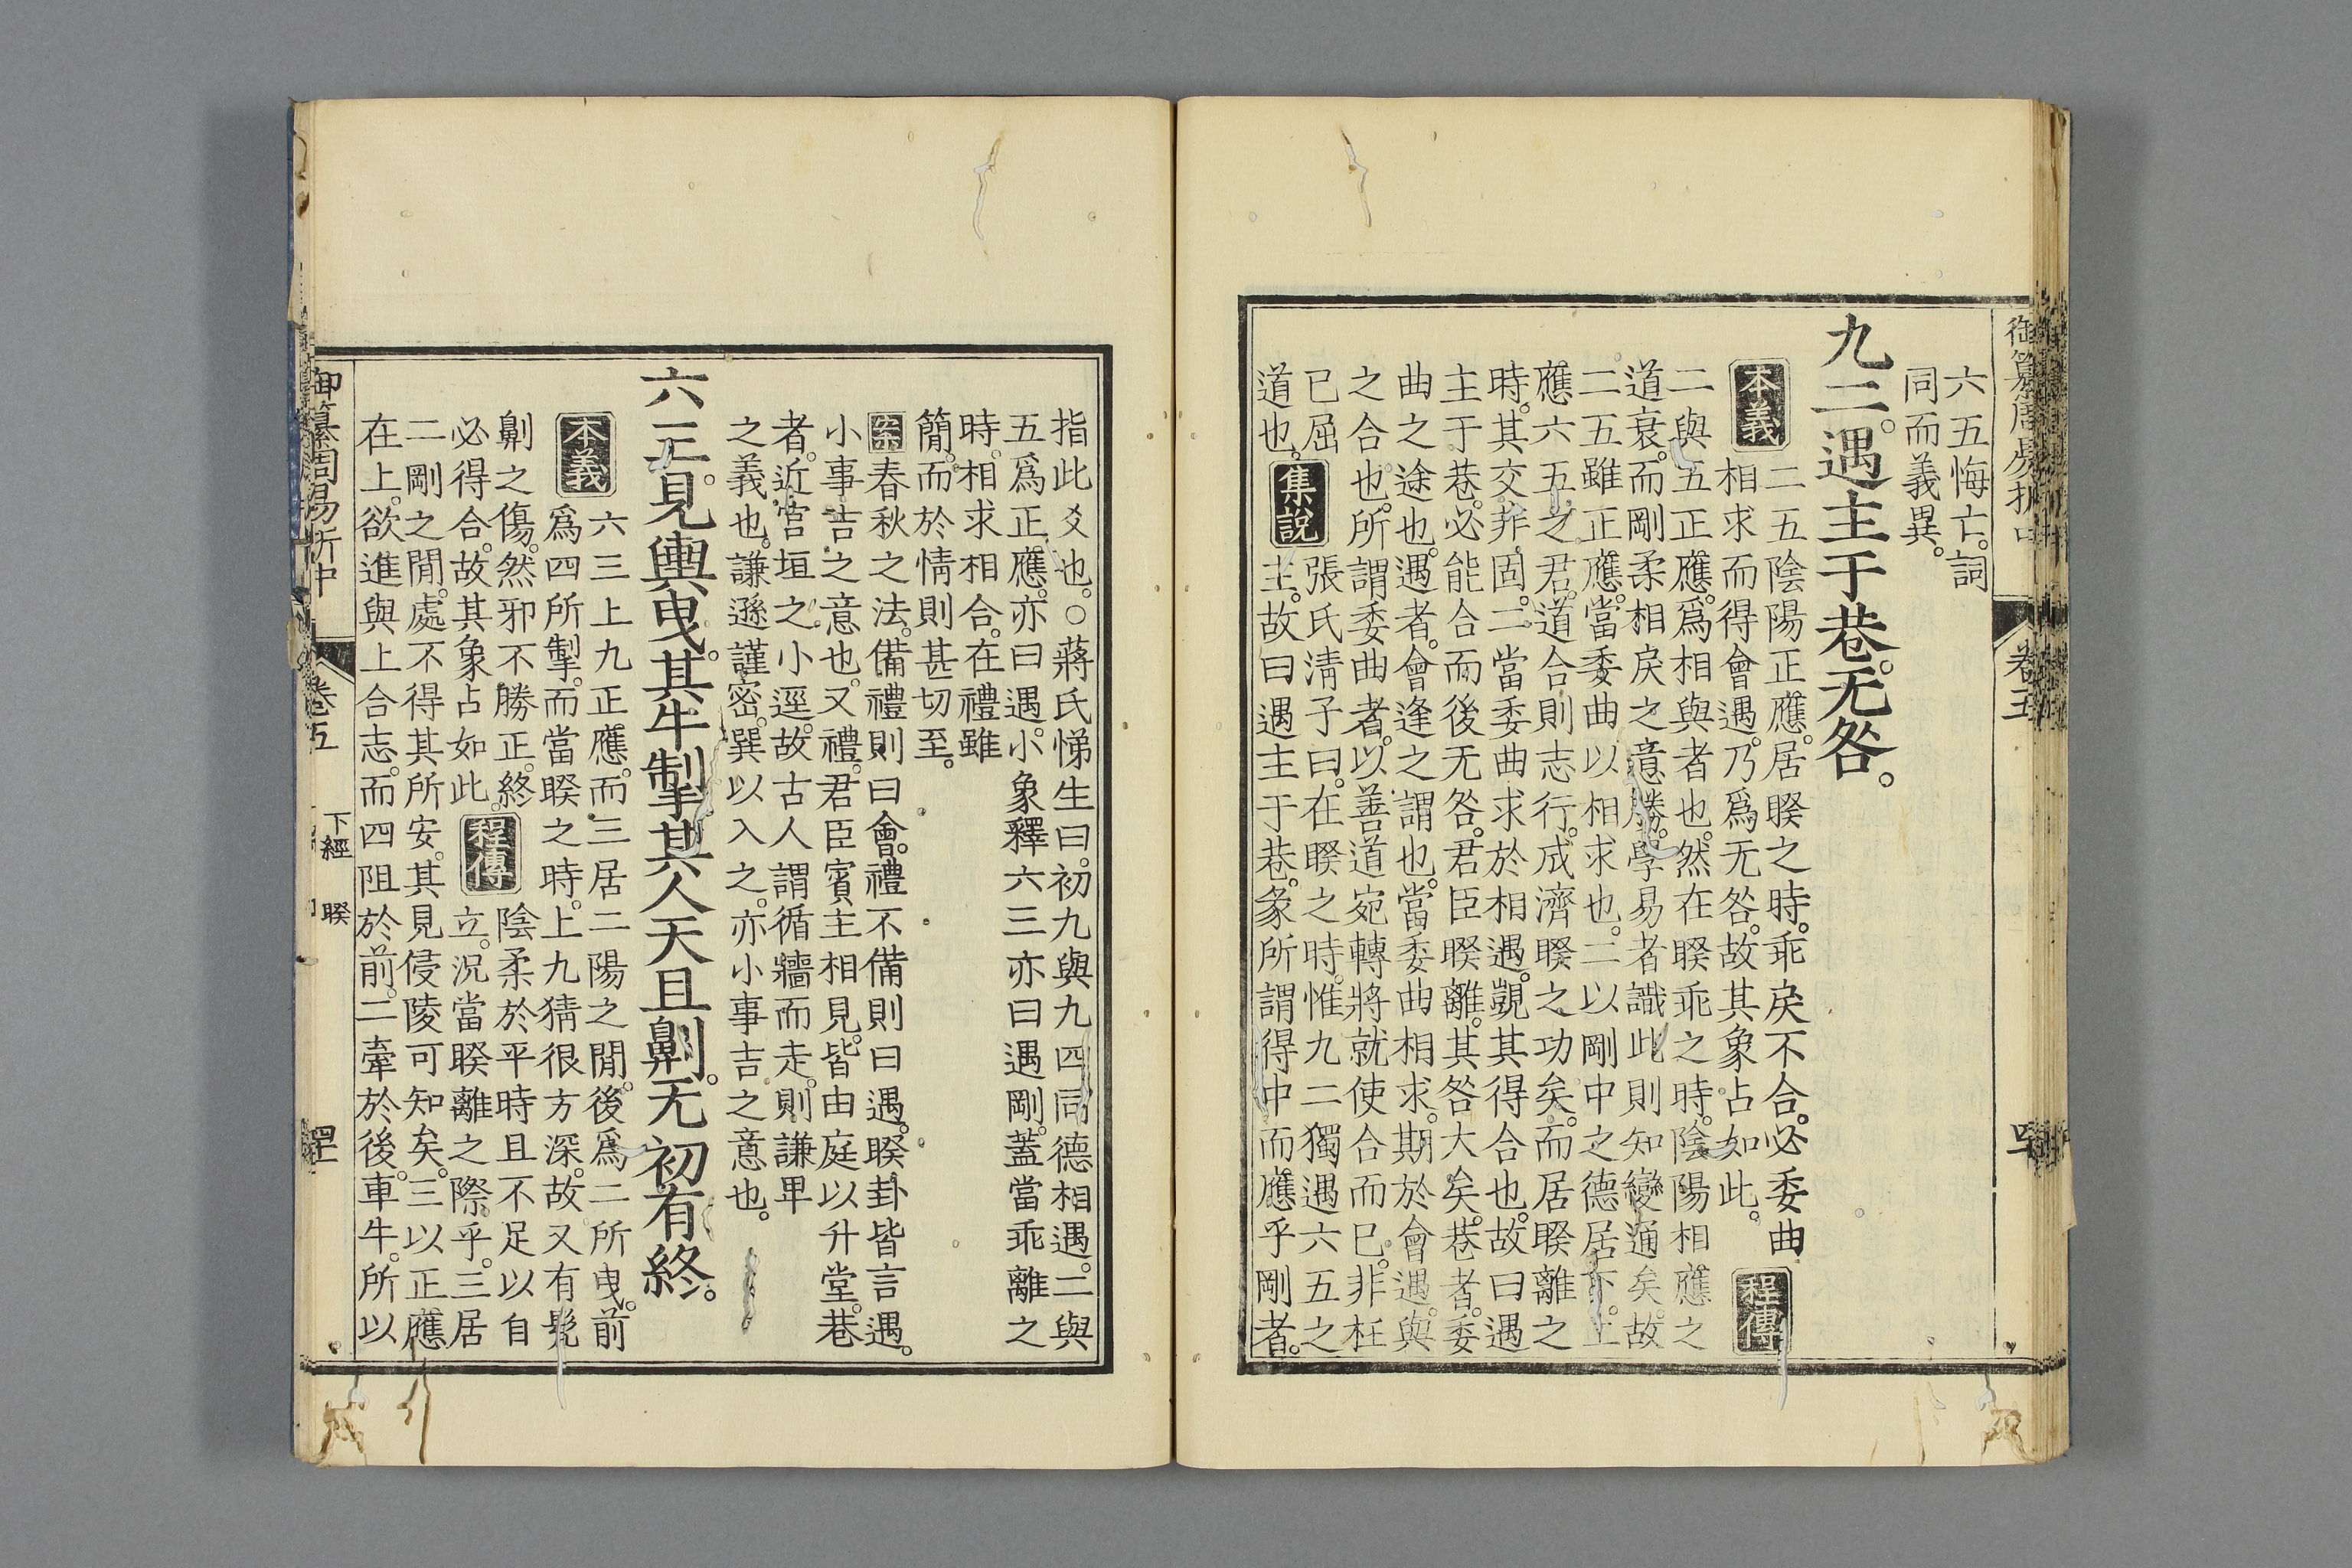 御纂周易折中 卷五
六五悔亡。詞
同而義異。
九二。遇主于巷。无咎。
本義
二五陰陽正應。居睽之時。乖戾不合。必委曲
相求而得會遇。乃爲无咎。故其象占如此。
程傳
二與五正應。爲相與者也。然在睽乖之時。陰陽相應之
道衰。而剛柔相戾之意勝。學易者識此則知變通矣。故
二五雖正應。當委曲以相求也。二以剛中之德居下。上
應六五之君。道合則志行。成濟睽之功矣。而居睽離之
時。其交非固。二當委曲求於相遇。覬其得合也。故曰遇
主于巷。必能合而後无咎。君臣睽離。其咎大矣。巷者。委
曲之途也。遇者。會逢之謂也。當委曲相求。期於會遇。與
之合也。所謂委曲者。以善道宛轉將就使合而已。非枉
已屈
道也。
集說
張氏清子曰。在睽之時。惟九二獨遇六五之
主。故曰遇主于巷。彖所謂得中而應乎剛者。
指此爻也。○蔣氏悌生曰。初九與九四同德相遇。二與
五爲正應。亦曰遇。小象釋六三亦曰遇剛。蓋當乖離之
時。相求相合。在禮雖
簡。而於情則甚切至。
案春秋之法。備禮則曰會。禮不備則曰遇。睽卦皆言遇。
小事吉之意也。又禮。君臣賓主相見。皆由庭以升堂。巷
者。近宮垣之小逕。故古人謂循牆而走。則謙卑
之義也。謙遜謹密。巽以入之。亦小事吉之意也。
六三。見輿曳。其牛掣其人天且劓。无初有終。
本義
六三上九正應。而三居二陽之閒。後爲二所曳。前
爲四所掣。而當睽之時。上九猜很方深。故又有髡
劓之傷。然邪不勝正。終
必得合。故其象占如此。
程傳
陰柔於平時且不足以自
立。況當睽離之際乎。三居
二剛之閒。處不得其所安。其見侵陵可知矣。三以正應
在上。欲進與上合志。而四阻於前。二牽於後。車牛。所以
御纂周易折中 卷五 下經 睽